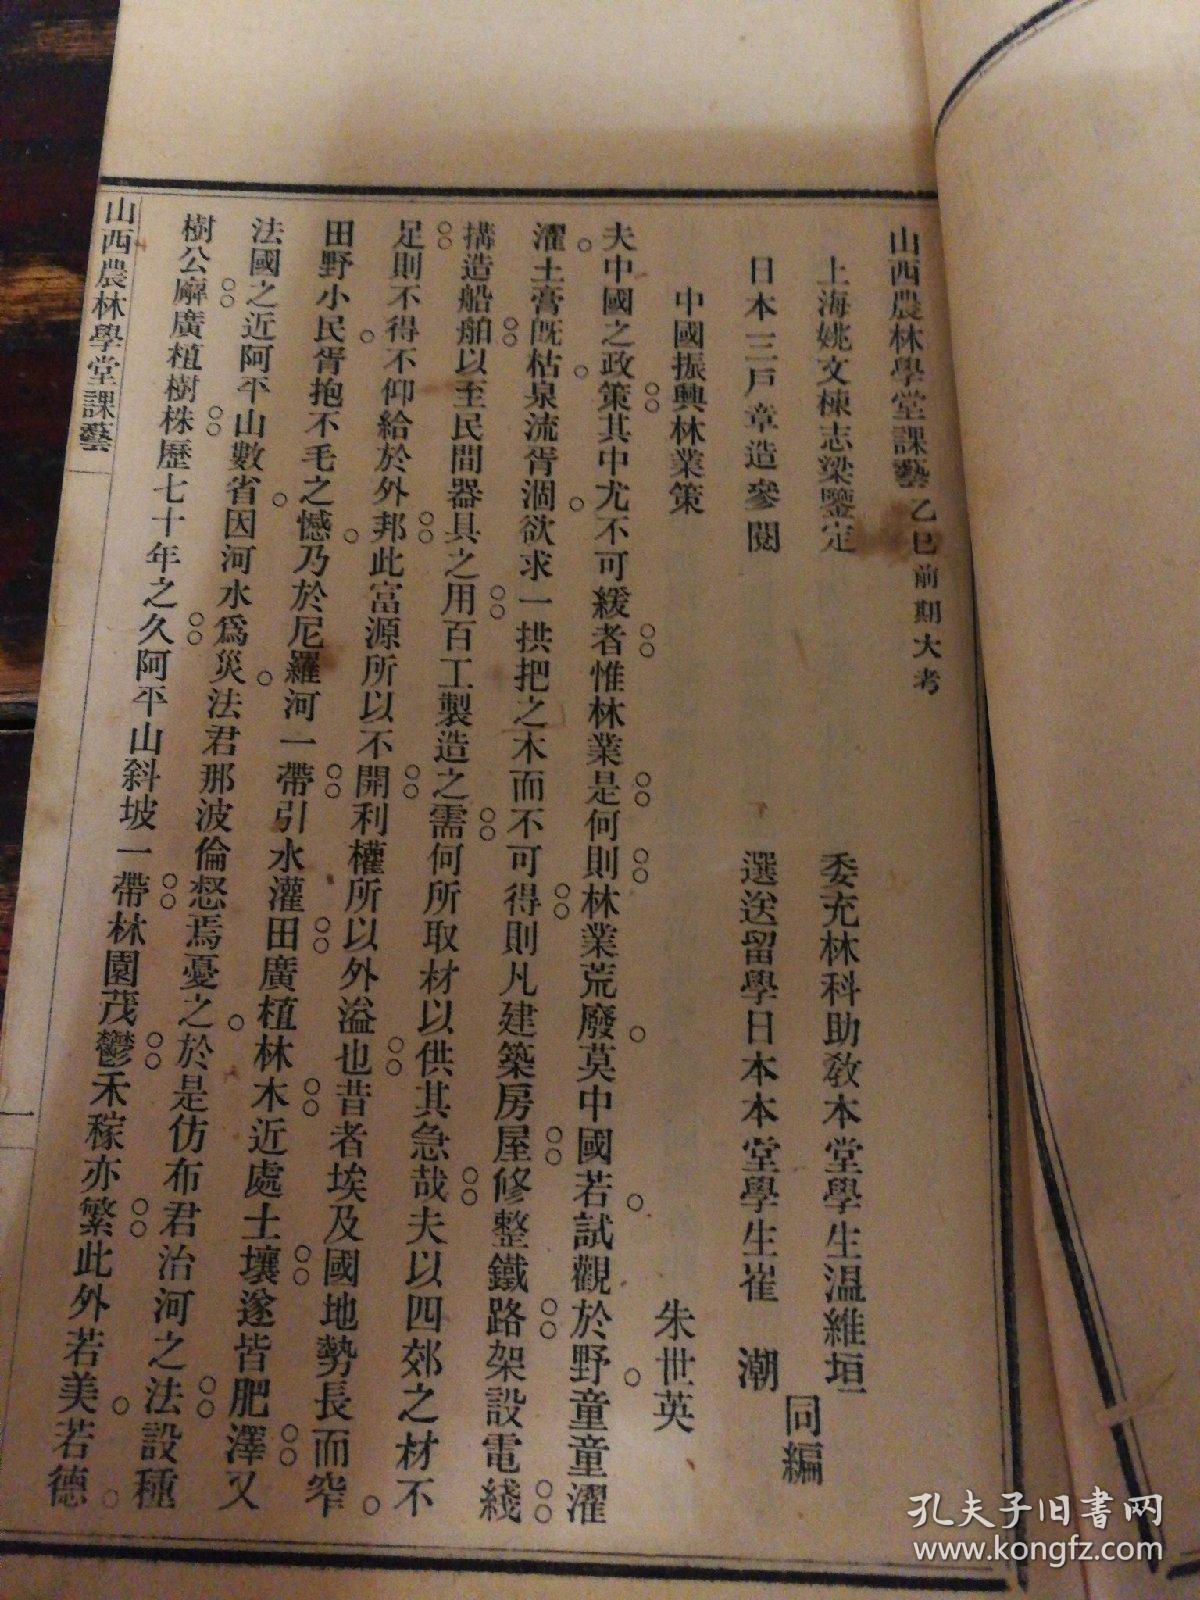 山西農林學堂課藝 乙巳前期大考
上海姚文棟志梁鑒定
委充林科助敎本堂學生溫維垣
同編
日本三戶章造參閱
選送留學日本本堂學生崔 潮
中國振興林業策
朱世英
夫中國之政策其中尤不可緩者惟林業是何則林業荒廢莫中國若試觀於野童童濯
濯土膏旣枯泉流胥涸欲求一拱把之木而不可得則凡建築房屋修整鐵路架設電綫
搆造船舶以至民間器具之用百工製造之需何所取材以供其急哉夫以四郊之材不
足則不得不仰給於外邦此富源所以不開利權所以外溢也昔者埃及國地勢長而窄
田野小民胥抱不毛之憾乃於尼羅河一帶引水灌田廣植林木近處土壤遂皆肥澤又
法國之近阿平山數省因河水爲災法君那波倫惄焉憂之於是仿布君治河之法設種
樹公廨廣植樹株歷七十年之久阿平山斜坡一帶林園茂鬱禾稼亦繁此外若美若德
山西農林學堂課藝
一
孔夫子旧书网
www.kongfz.com